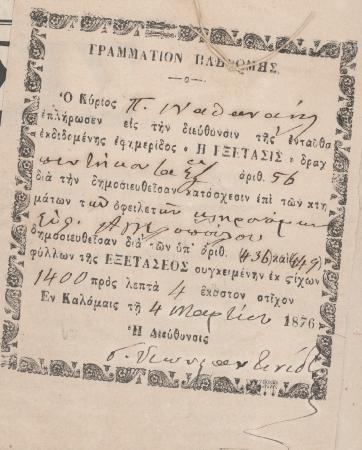 ΓΡΑΜΜΑΤΙΟΝ ΠΛΗΡΩΜΗΣ
Ὁ Κύριος Π. Ναθαναὴλ
ἐπλήρωσεν εἰς τὴν διεύθυνσιν τῆς ἐνταῦθα
ἐκδιδομένης ἐφημερίδος « Ἡ ΕΞΕΤΑΣΙΣ » δραχ
πεντήκοντα ἓξ ἀριθ. 56
διὰ τὴν δημοσιευθεῖσαν κατάσχεσιν ἐπὶ τῶν κτη
μάτων τ ὀφειλετῶν κληρονόμων
δημοσιευθεῖσαν διὰ τῶν ὑπ' ἀριθ. 436 καὶ 449
φύλλων τῆς ΕΞΕΤΑΣΕΩΣ συγκειμένην ἐκ στίχων
1400 πρὸς λεπτὰ 4 ἕκαστον στίχον
Ἐν Καλάμαις τῇ 4 Μαρτίου 1876
Ἡ Διεύθυνσις